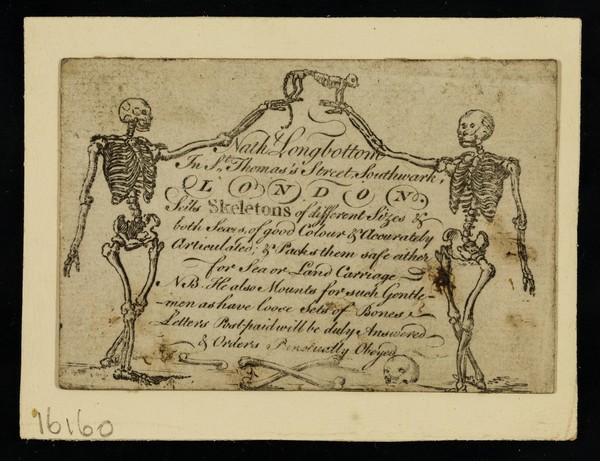 Nathl. Longbottom
In St. Thomas's Street Southwark,
LONDON.
Sells Skeletons of different Sizes &
both Sexes, of good Colour & Accurately
Articulated; & Packs them safe either
for Sea or Land Carriage
N.B. He also Mounts for such Gentle-
-men as have loose Sets of Bones
Letters Postpaid will be duly Answered
& Orders Punctually Obeyed
16160